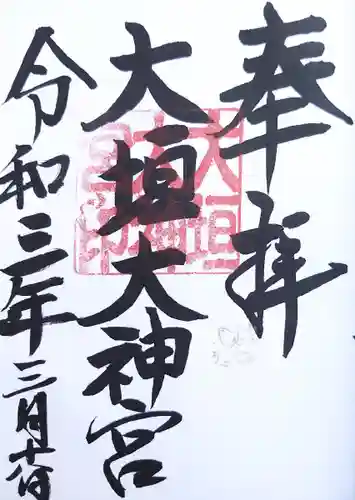 奉拝
大垣大神宮
令和三年三月十八日